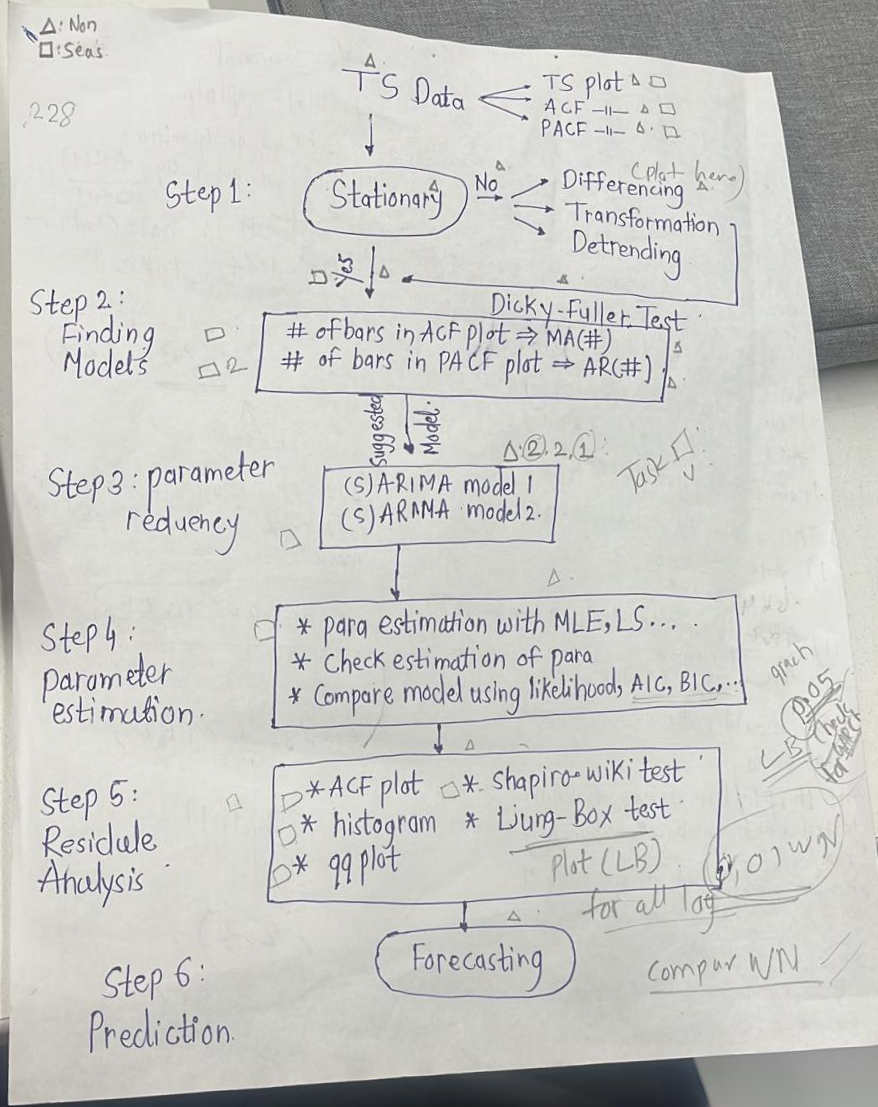 △: Non
□: Seas.
228
TS Data
TS plot △ □
ACF -॥- △ □
PACF -॥- △ □
Step 1:
Stationary
No
Differencing (plot here)
Transformation
Detrending
Yes
Dicky-Fuller Test
Step 2:
Finding
Models
□ 2
# of bars in ACF plot ⇒ MA(#)
# of bars in PACF plot ⇒ AR(#)
Suggested Model.
△: ②, 2, ①:
Task □:
Step 3: parameter
reduency
(S)ARIMA model 1
(S)ARMA model 2.
Step 4:
parameter
estimation.
* para estimation with MLE, LS...
* Check estimation of para
* Compare model using likelihood, AIC, BIC,...
0.05
LB
Step 5:
Residule
Analysis
* ACF plot
* Shapiro-wiki test
* histogram
* Ljung-Box test
* qq plot
plot (LB)
for all lag
WN
Forecasting
compar WN
Step 6:
Prediction.